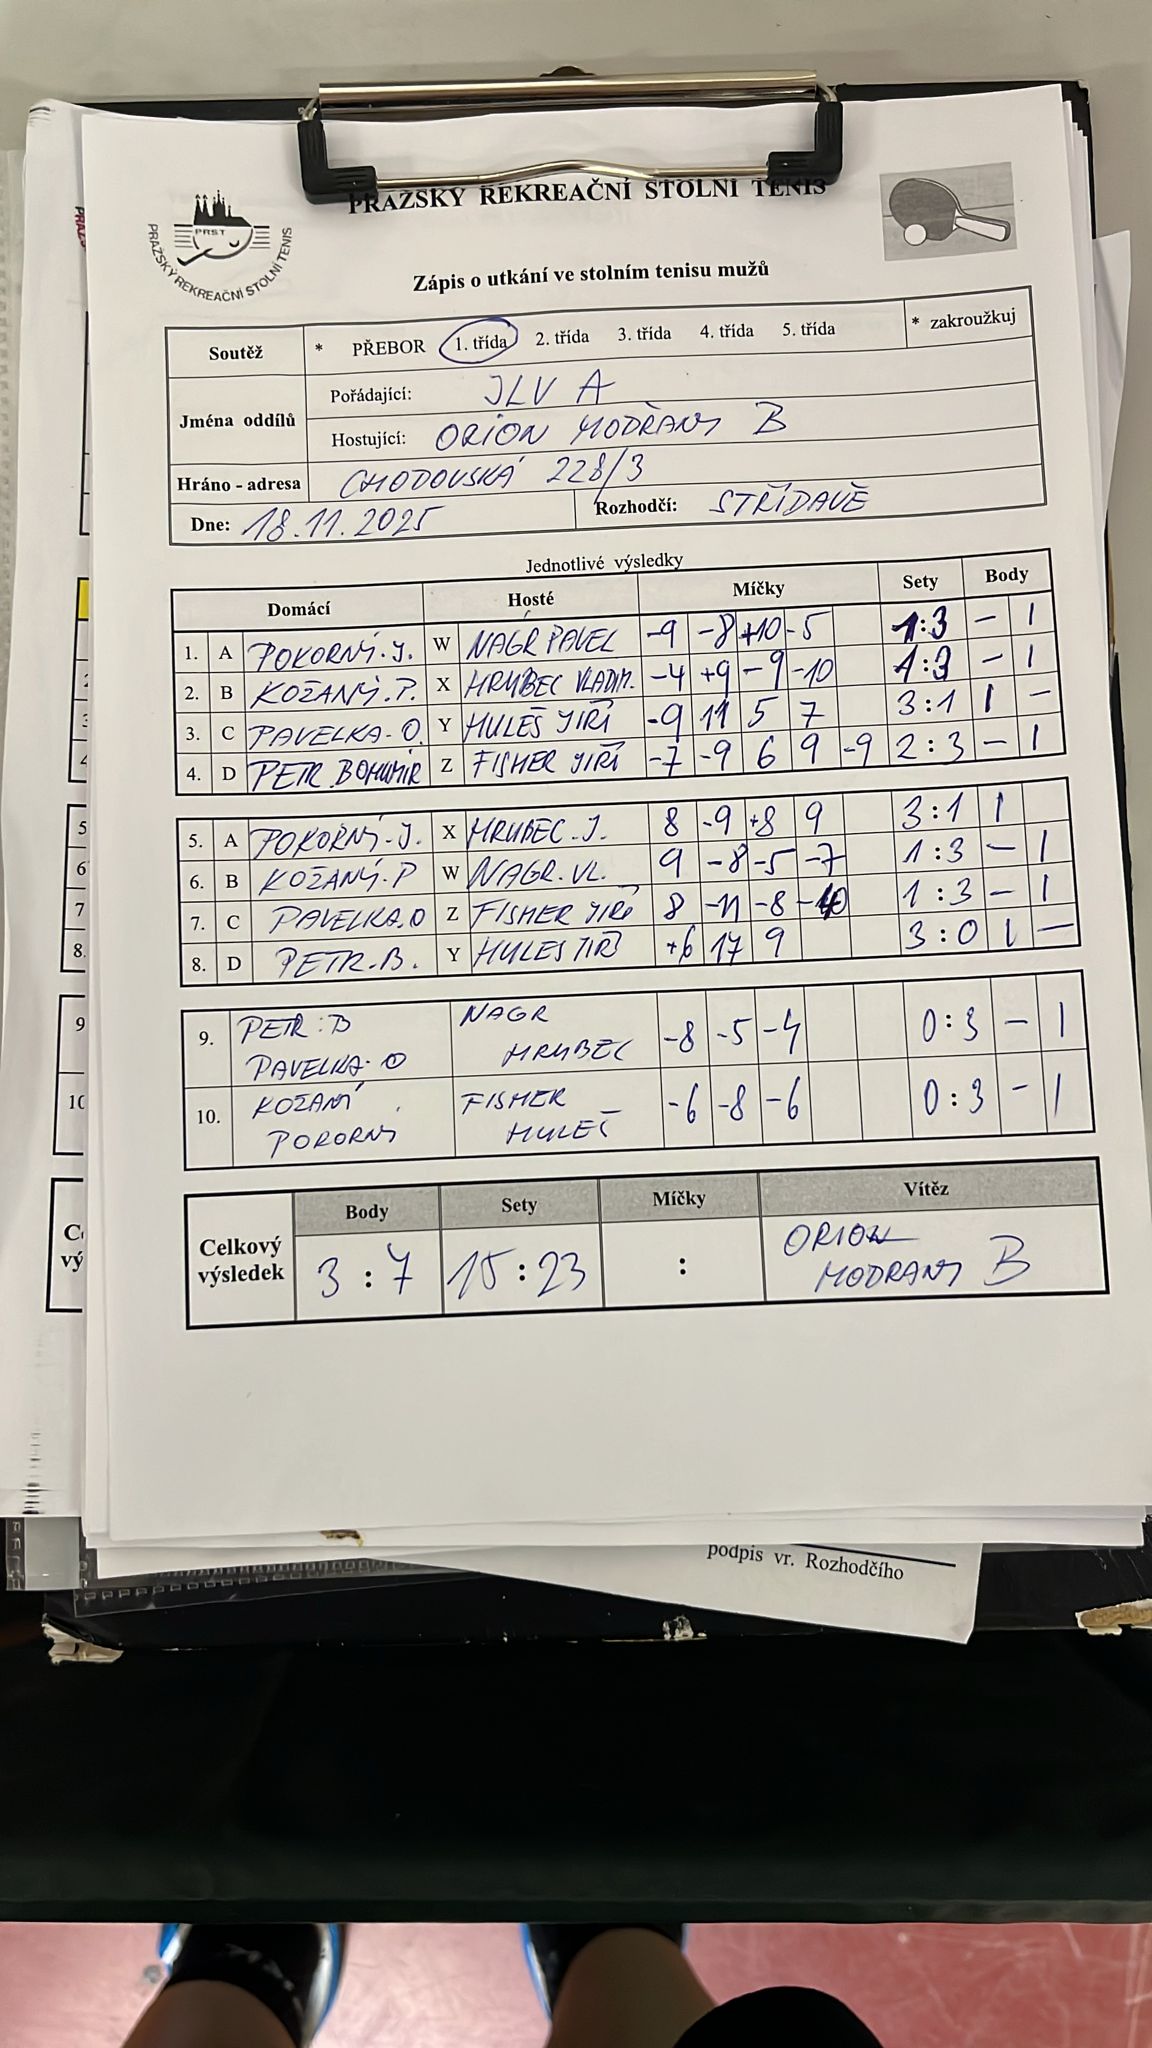 PRAŽSKÝ REKREAČNÍ STOLNÍ TENIS
PRST
PRAŽSKÝ REKREAČNÍ STOLNÍ TENIS
Zápis o utkání ve stolním tenisu mužů
Soutěž * PŘEBOR 1. třída 2. třída 3. třída 4. třída 5. třída * zakroužkuj
Jména oddílů
Pořádající: JLV A
Hostující: ORION MODŘANY B
Hráno - adresa CHODOVSKÁ 228/3
Dne: 18.11.2025 Rozhodčí: STŘÍDAVĚ
Jednotlivé výsledky
Domácí Hosté Míčky Sety Body
1. A POKORNÝ.J. W NAGR PAVEL -9 -8 +10 -5 1:3 - 1
2. B KOŽANÝ.P. X HRUBEC VLADIM. -4 +9 -9 -10 1:3 - 1
3. C PAVELKA-O. Y HULEŠ JIŘÍ -9 11 5 7 3:1 1 -
4. D PETR BOHUMÍR Z FISHER JIŘÍ -7 -9 6 9 -9 2:3 - 1
5. A POKORNÝ-J. X HRUBEC.J. 8 -9 +8 9 3:1 1
6. B KOŽANÝ.P W NAGR.VL. 9 -8 -5 -7 1:3 - 1
7. C PAVELKA.O Z FISHER JIŘÍ 8 -11 -8 -10 1:3 - 1
8. D PETR-B. Y HULEŠ JIŘÍ +6 17 9 3:0 1 -
9. PETR:B NAGR -8 -5 -4 0:3 - 1
PAVELKA-O HRUBEC
10. KOŽANÝ FISHER -6 -8 -6 0:3 - 1
POKORNÝ HULEŠ
Body Sety Míčky Vítěz
Celkový výsledek 3:7 15:23 : ORION
MODRANY B
podpis vr. Rozhodčího